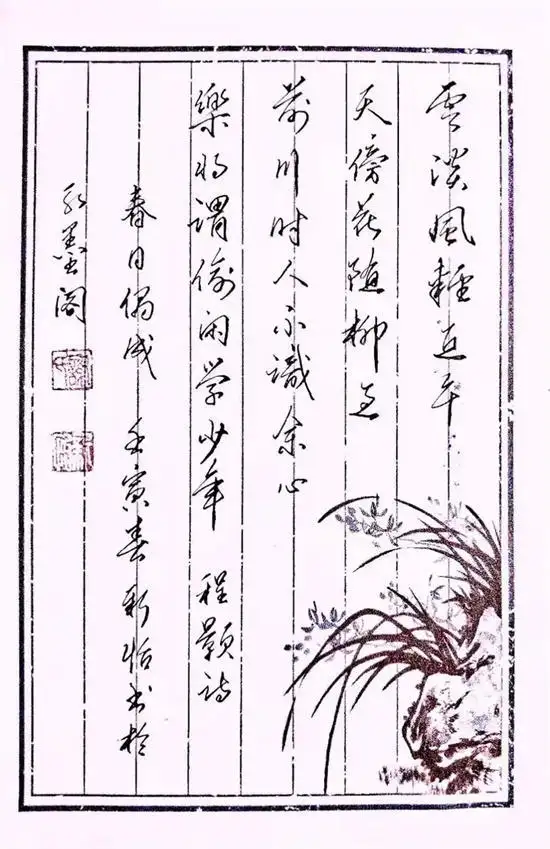 雲淡風輕近午
天傍花隨柳過
前川时人不識余心
樂将謂偷闲学少年 程顥詩
春日偶成 壬寅春新恬书於
墨阁